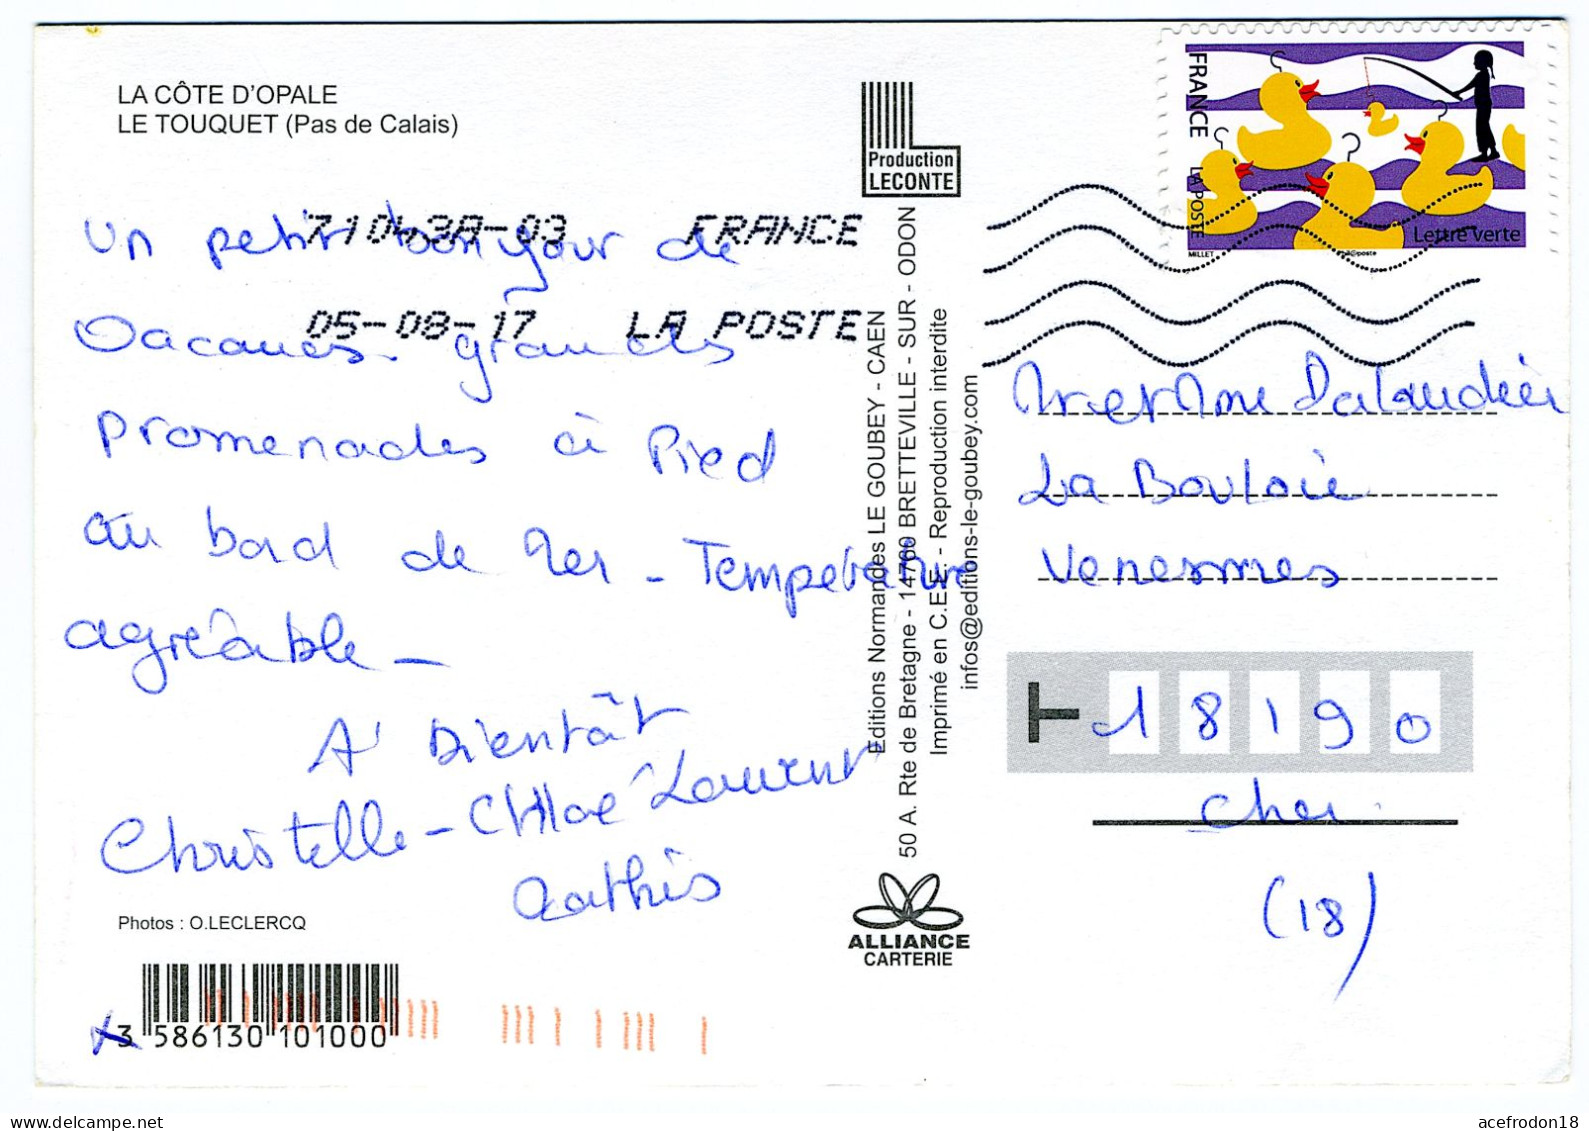 LA CÔTE D'OPALE
LE TOUQUET (Pas de Calais)
Production
LECONTE
FRANCE
LA POSTE
MILLET
Lettre verte
71043A-03 FRANCE
05-08-17 LA POSTE
Un petit bonjour de
Vacances. grandes
promenades à Pied
au bord de Mer - Température
agréable -
A Bientôt
Christelle - Chloé Laurent
Mathis
Photos : O.LECLERCQ
3 586130 101000
Editions Normandes LE GOUBEY - CAEN
50 A. Rte de Bretagne - 14760 BRETTEVILLE - SUR - ODON
Imprimé en C.E.E. - Reproduction interdite
infos@editions-le-goubey.com
ALLIANCE
CARTERIE
Mr et Mme Dalaudier
La Bouloie
Venesmes
18190
Cher.
(18)
acefrodon18